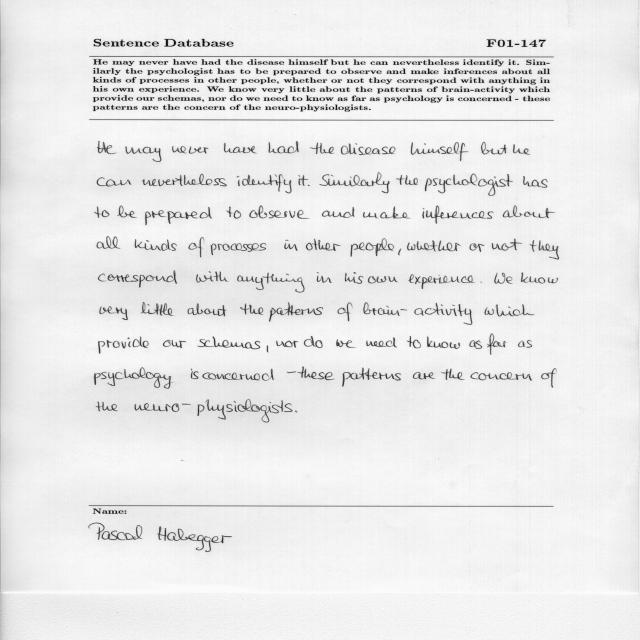 Sentence Database F01-147
He may never have had the disease himself but he can nevertheless identify it. Sim-
ilarly the psychologist has to be prepared to observe and make inferences about all
kinds of processes in other people, whether or not they correspond with anything in
his own experience. We know very little about the patterns of brain-activity which
provide our schemas, nor do we need to know as far as psychology is concerned - these
patterns are the concern of the neuro-physiologists.
He may never have had the disease himself but he
can nevertheless identify it. Similarly the psychologist has
to be prepared to observe and make inferences about
all kinds of processes in other people, whether or not they
correspond with anything in his own experience. We know
very little about the patterns of brain-activity which
provide our schemas, nor do we need to know as far as
psychology is concerned - these patterns are the concern of
the neuro-physiologists.
Name:
Pascal Habegger